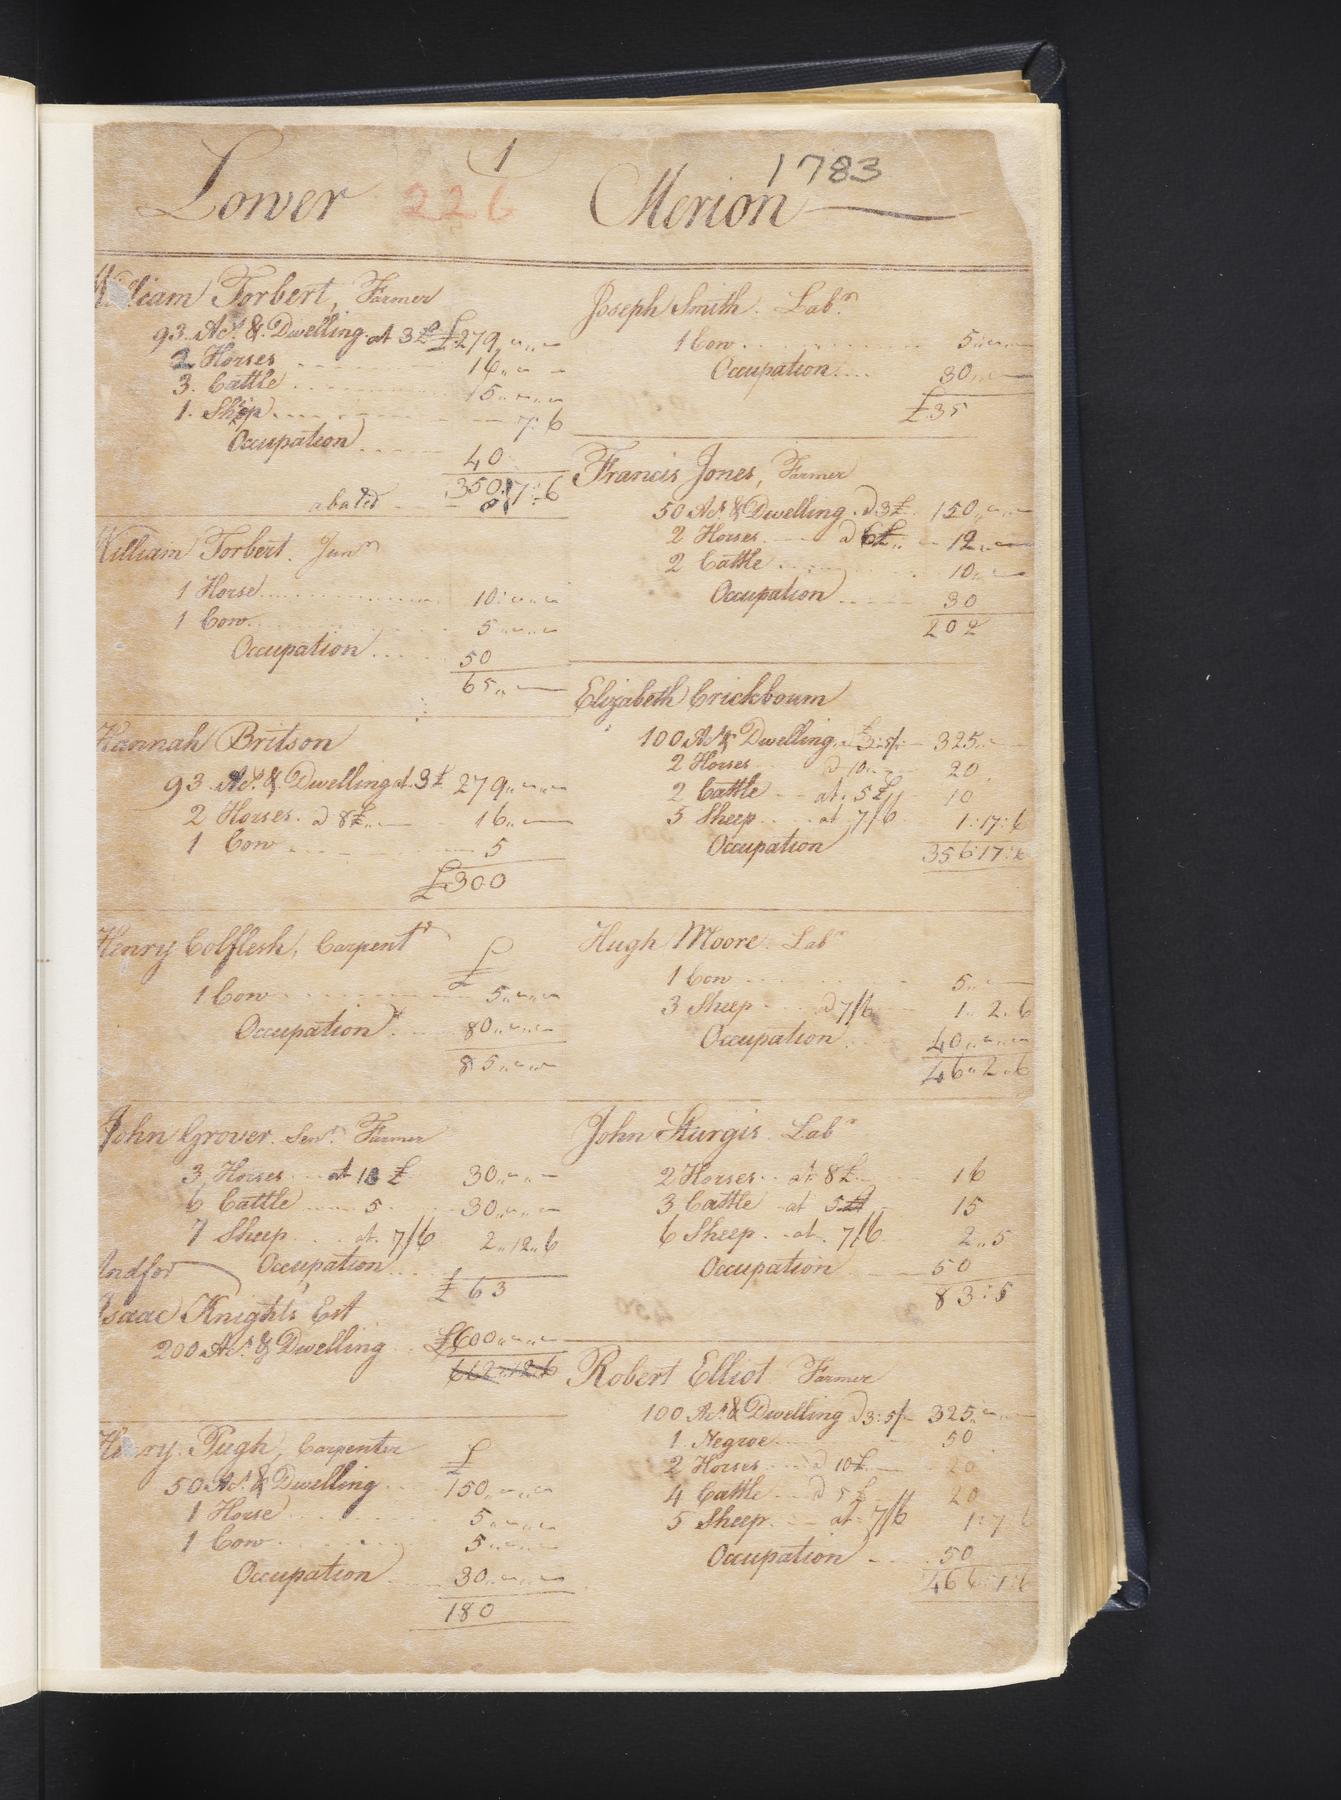 1
1783
Lower 226 Merion
William Torbert, Farmer
93 Acs. & Dwelling at 3£ £279,,-,,-
2 Horses 16,,-
3. Cattle 15,,-,,-
1. Shep 7:6
Occupation 40
350:7:6
abated
William Torbert. Junr
1 Horse 10:-,,-
1 Cow 5,,-,,-
Occupation 50
65,,-
Hannah Britson
93 Acs. & Dwelling at 3£ 279,,-,,-
2 Horses. a 8£,,- 16,,-
1 Cow 5
£300
Henry Colflesh, Carpentr
£
1 Cow 5,,-,,-
Occupation 80,,-,,-
85,,-,,-
John Grover. Senr. Farmer
3 Horses at 10 £ 30,,-,,-
6 Cattle 5 30,,-,,-
7 Sheep at 7/6 2,,12,,6
Occupation
£ 63
And for
Isaac Knights Est
200 Acs. & Dwelling £600,,-,,-
662,,12,,6
Henry Pugh, Carpenter
£
50 Acs. & Dwelling 150,,-,,-
1 Horse 5,,-,,-
1 Cow 5,,-,,-
Occupation 30,,-,,-
180
Joseph Smith. Labr.
1 Cow 5,,-,,-
Occupation 30,,-
£35
Francis Jones, Farmer
50 Acs. & Dwelling. a 3£. 150,,-,,-
2 Horses a 6£,, 12,,-
2 Cattle 10,,-
Occupation 30
202
Elizabeth Crickboum
100 Acs. & Dwelling. a £3:5/- 325,,-
2 Horses a 10,,- 20
2 Cattle at. 5£,, 10
5 Sheep at 7/6 1:17:6
Occupation 356:17:6
Hugh Moore. Labr
1 Cow 5,,-
3 Sheep a 7/6 1,,2,,6
Occupation 40,,-,,-
46,,2,,6
John Sturgis. Labr
2 Horses at 8£ 16
3 Cattle at 5 15
6 Sheep at. 7/6 2,,5
Occupation 50
83:5
Robert Elliot Farmer
100 Acs. & Dwelling a 3:5/- 325,,-
1 Negroe 50
2 Horses a 10£ 20
4 Cattle a 5£ 20
5 Sheep. at 7/6 1:7:6
Occupation 50
466:7:6